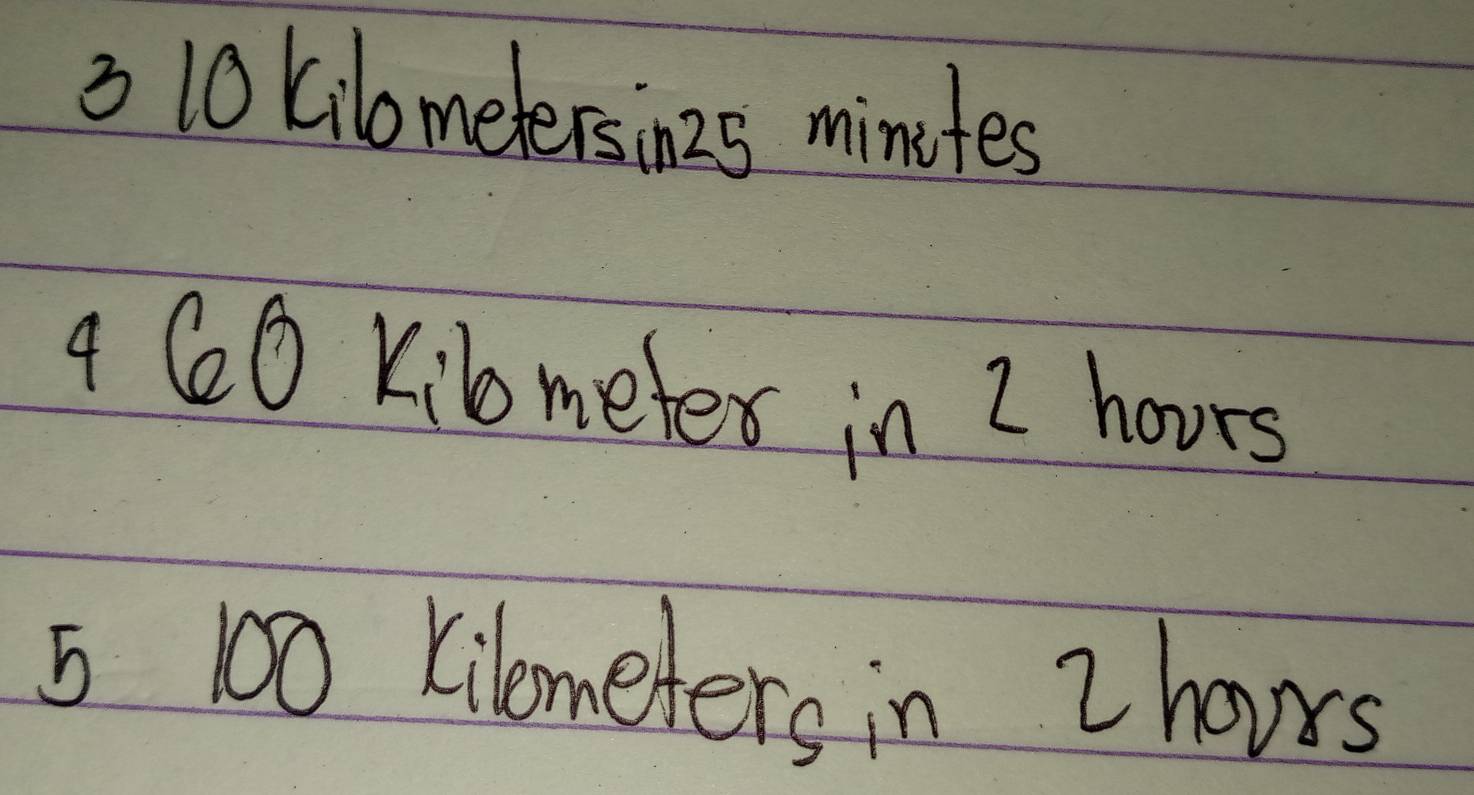 3 10 Kilometers in 25 minutes
4 60 Kilometer in 2 hours
5 100 Kilometers in 2 hours